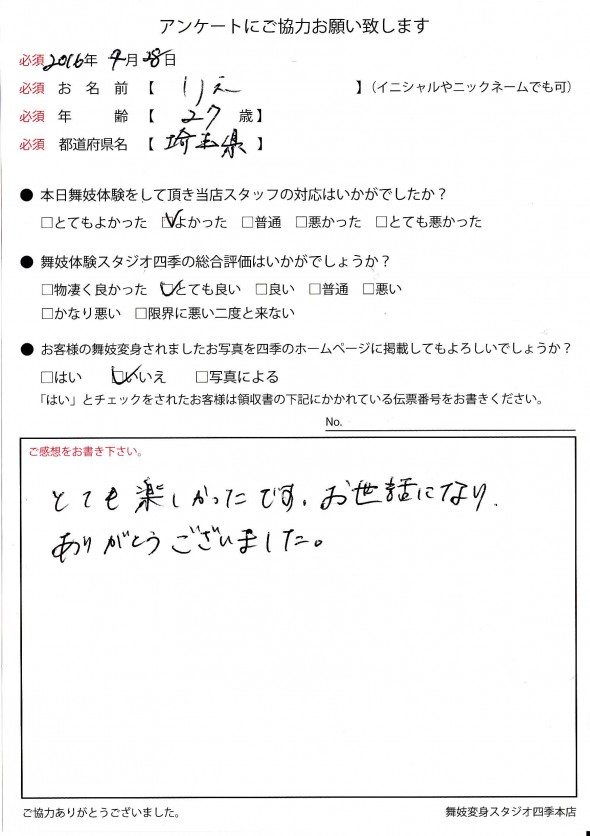 アンケートにご協力お願い致します
必須 2016年 4月 28日
必須 お名前 【 りえ 】（イニシャルやニックネームでも可）
必須 年齢 【 27 歳】
必須 都道府県名 【 埼玉県 】
● 本日舞妓体験をして頂き当店スタッフの対応はいかがでしたか？
□とてもよかった ☑よかった □普通 □悪かった □とても悪かった
● 舞妓体験スタジオ四季の総合評価はいかがでしょうか？
□物凄く良かった ☑とても良い □良い □普通 □悪い
□かなり悪い □限界に悪い二度と来ない
● お客様の舞妓変身されましたお写真を四季のホームページに掲載してもよろしいでしょうか？
□はい ☑いいえ □写真による
「はい」とチェックをされたお客様は領収書の下記にかかれている伝票番号をお書きください。
No.
ご感想をお書き下さい。
とても楽しかったです。お世話になり、
ありがとうございました。
ご協力ありがとうございました。 舞妓変身スタジオ四季本店